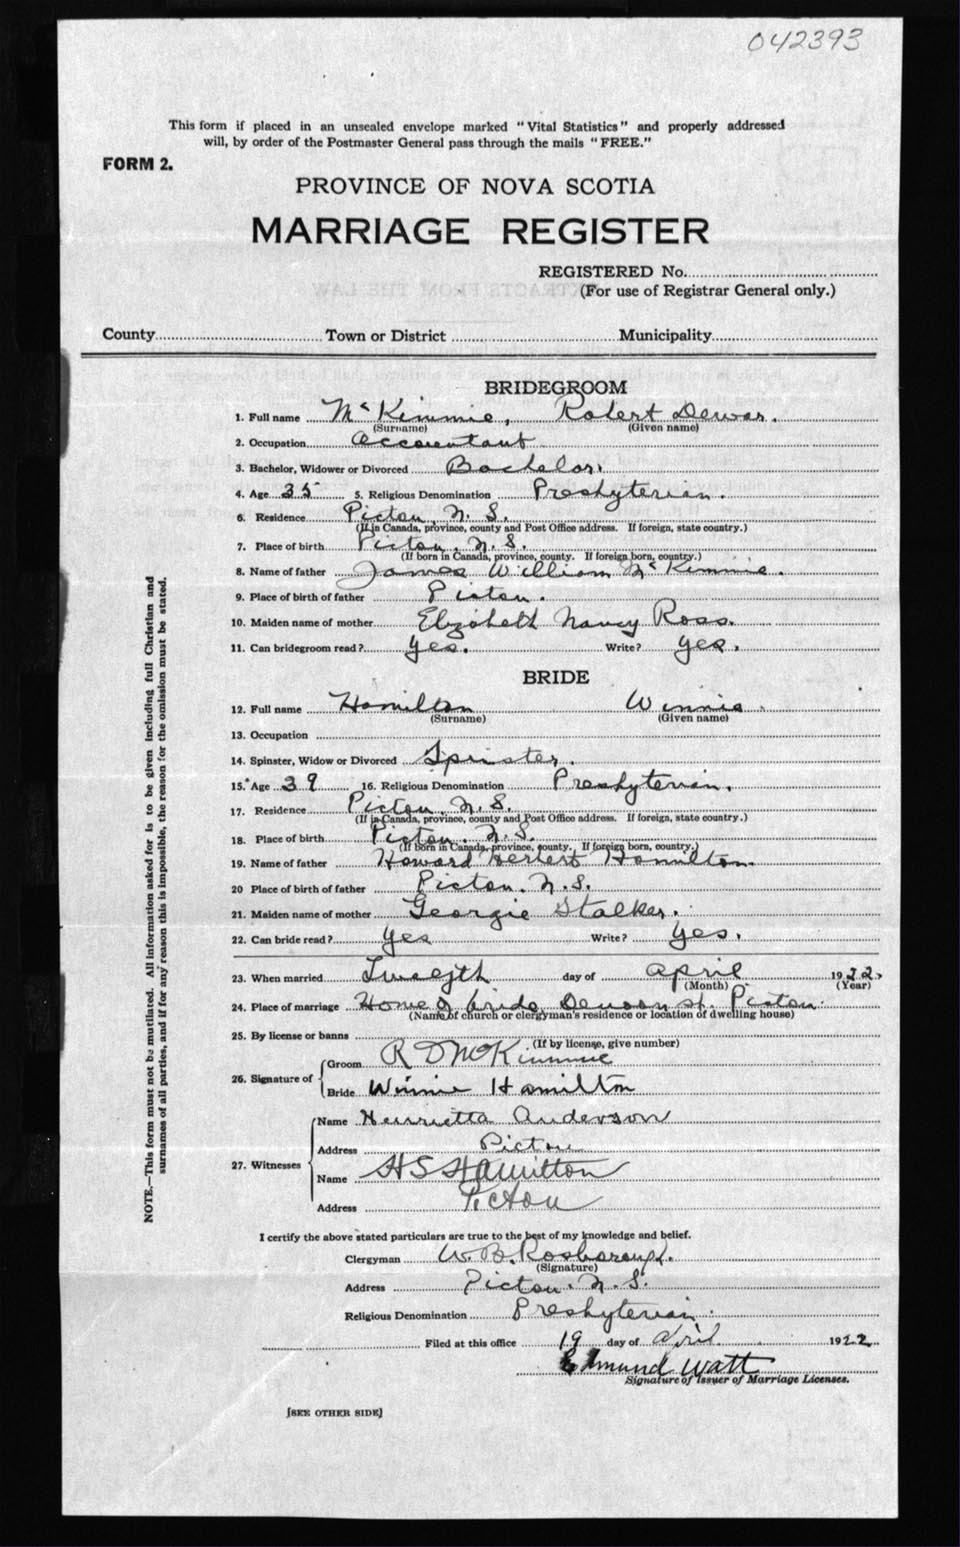 042393
This form if placed in an unsealed envelope marked "Vital Statistics" and properly addressed
will, by order of the Postmaster General pass through the mails "FREE."
FORM 2.
PROVINCE OF NOVA SCOTIA
MARRIAGE REGISTER
REGISTERED No.
(For use of Registrar General only.)
County Town or District Municipality
BRIDEGROOM
1. Full name McKimmie, Robert Dewar.
(Surname) (Given name)
2. Occupation accountant
3. Bachelor, Widower or Divorced Bachelor.
4. Age 35 5. Religious Denomination Presbyterian.
6. Residence Pictou, N. S.
(If in Canada, province, county and Post Office address. If foreign, state country.)
7. Place of birth Pictou, N. S.
(If born in Canada, province, county. If foreign born, country.)
8. Name of father James William McKimmie.
9. Place of birth of father Pictou.
10. Maiden name of mother Elizabeth Nancy Ross.
11. Can bridegroom read? Yes. Write? yes.
BRIDE
12. Full name Hamilton Winnie.
(Surname) (Given name)
13. Occupation
14. Spinster, Widow or Divorced Spinster.
15. Age 39 16. Religious Denomination Presbyterian.
17. Residence Pictou, N. S.
(If in Canada, province, county and Post Office address. If foreign, state country.)
18. Place of birth Pictou. N. S.
(If born in Canada, province, county. If foreign born, country.)
19. Name of father Howard Herbert Hamilton.
20 Place of birth of father Pictou. N. S.
21. Maiden name of mother Georgie Stalker.
22. Can bride read? Yes Write? Yes.
23. When married Twelfth day of April 1922.
(Month) (Year)
24. Place of marriage Home of bride St. Pictou.
(Name of church or clergyman's residence or location of dwelling house)
25. By license or banns
(If by license, give number)
26. Signature of Groom R D McKimmie
Bride Winnie Hamilton
27. Witnesses Name Henrietta Anderson
Address Pictou
Name H S Hamilton
Address Pictou
I certify the above stated particulars are true to the best of my knowledge and belief.
Clergyman W. B. Rosborough.
(Signature)
Address Pictou. N. S.
Religious Denomination Presbyterian.
Filed at this office 19 day of April 1922
Edmund Watt
Signature of Issuer of Marriage Licenses.
[SEE OTHER SIDE]
NOTE.—This form must not be mutilated. All information asked for is to be given including full Christian and
surnames of all parties, and if for any reason this is impossible, the reason for the omission must be stated.